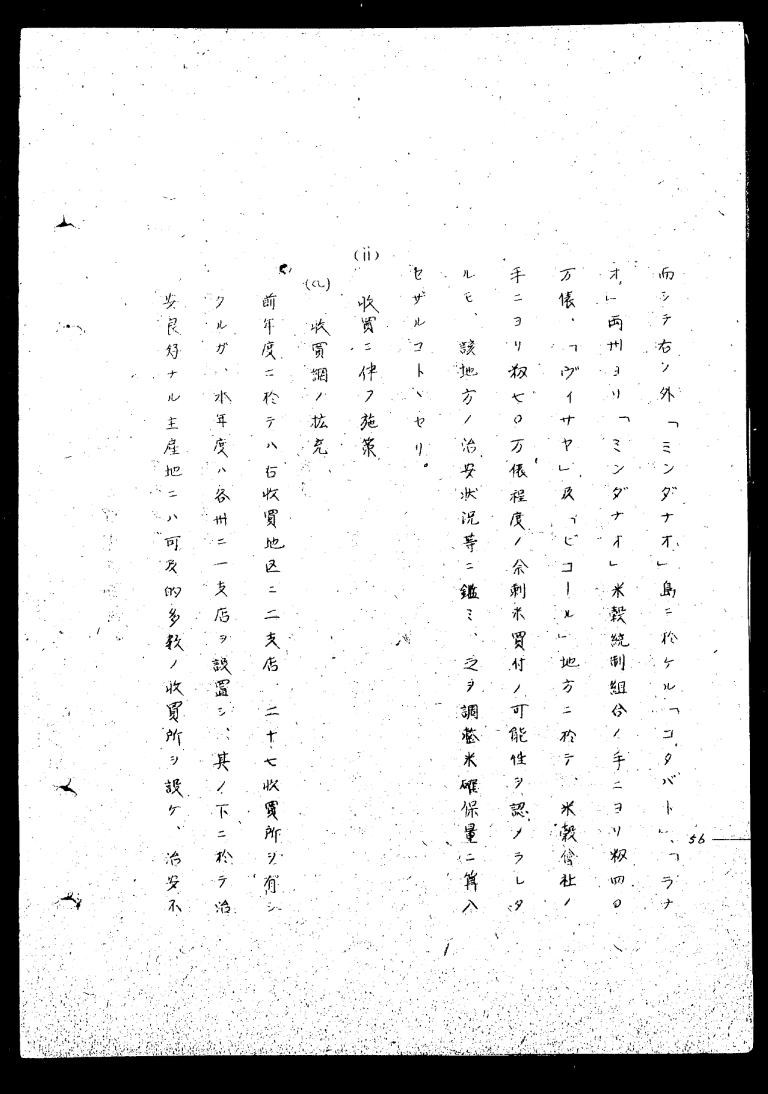 而シテ右ノ外「ミンダナオ」島ニ於ケル「コタバト」、「ラナ
オ」両州ヨリ「ミンダナオ」米穀統制組合ノ手ニヨリ籾四〇
万俵、「ヴィサヤ」及「ビコール」地方ニ於テ、米穀會社ノ
手ニヨリ籾七〇万俵程度ノ余剰米買付ノ可能性ヲ認メラレタ
ルモ、該地方ノ治安状況等ニ鑑ミ、之ヲ調整米確保量ニ算入
セザルコトヽセリ。
(ii) 收買ニ伴フ施策
(a) 收買網ノ拡充
前年度ニ於テハ右收買地区ニ二支店、二十七收買所ヲ有シ
タルガ、本年度ハ各州ニ一支店ヲ設置シ、其ノ下ニ於テ治
安良好ナル主産地ニハ可及的多数ノ收買所ヲ設ケ、治安不
56